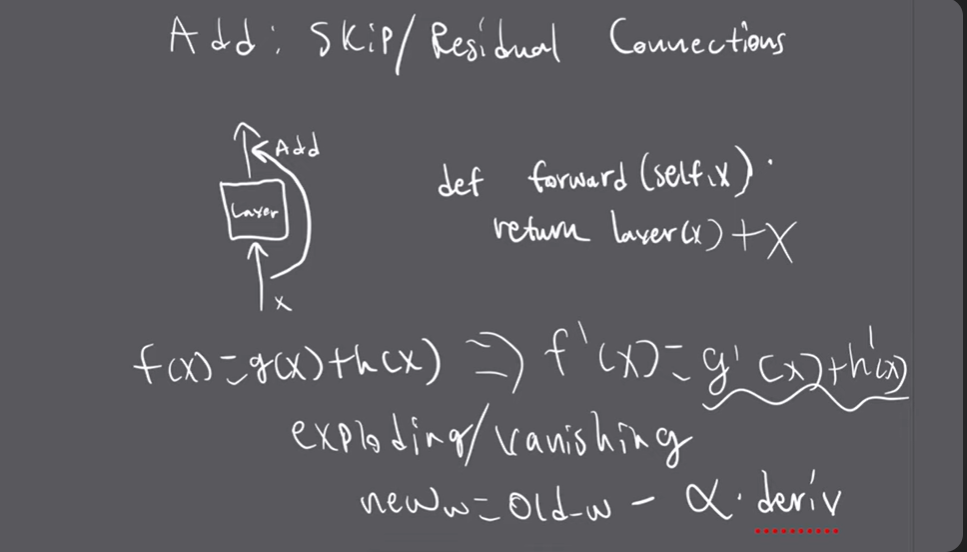 Add: Skip/Residual Connections
Add
def forward(self,x):
Layer
return layer(x)+x
x
f(x)=g(x)+h(x) ⇒ f'(x)=g'(x)+h'(x)
exploding/vanishing
new_w=old_w - α·deriv